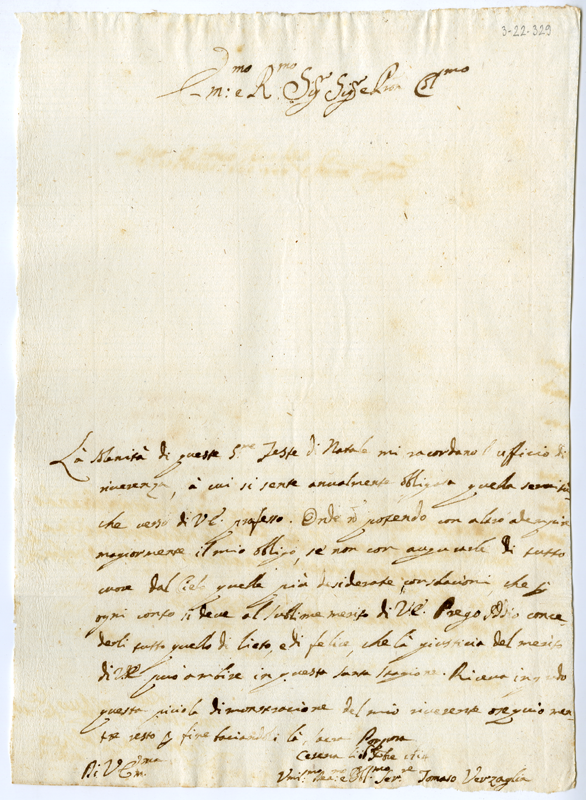 3-22-329
Em:mo e Rmo Sigr Sigr e Pron Colmo
La solenità di queste Sme Feste di Natale mi racordano l'ufficio di
riverenza, à cui si sente anualmente obligata quella servitù
che verso di V.E. professo. Onde nõ potendo con altro adempire
magiormente il mio obligo, se non con augurarle di tutto
cuore dal Cielo quelle più desiderate consolacioni, che p
ogni conto si deve al sublime merito di V.E. Prego Iddio conce-
derli tutto quello di lieto, e di felice, che là giusticia del merito
di V.E. può ambire in questa santa stagione. Riceva in grado
questa piciola dimonstracione del mio riverente ossequio men-
tre resto p fine baciandoli là sacra Porpora
Cesena li Xbre
Di V. Emma
Umilmo Ser.re Tomaso Verzaglia